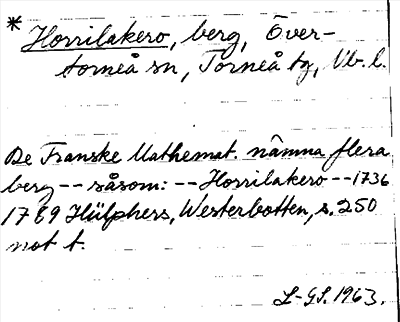 * Horrilakero, berg, Över-
torneå sn, Torneå tg, Vb. l.
De Franske Mathemat. nämna flera
berg -- såsom: -- Horrilakero -- 1736
1789 Hülphers, Westerbotten, s. 250
not t.
L-GS. 1963.